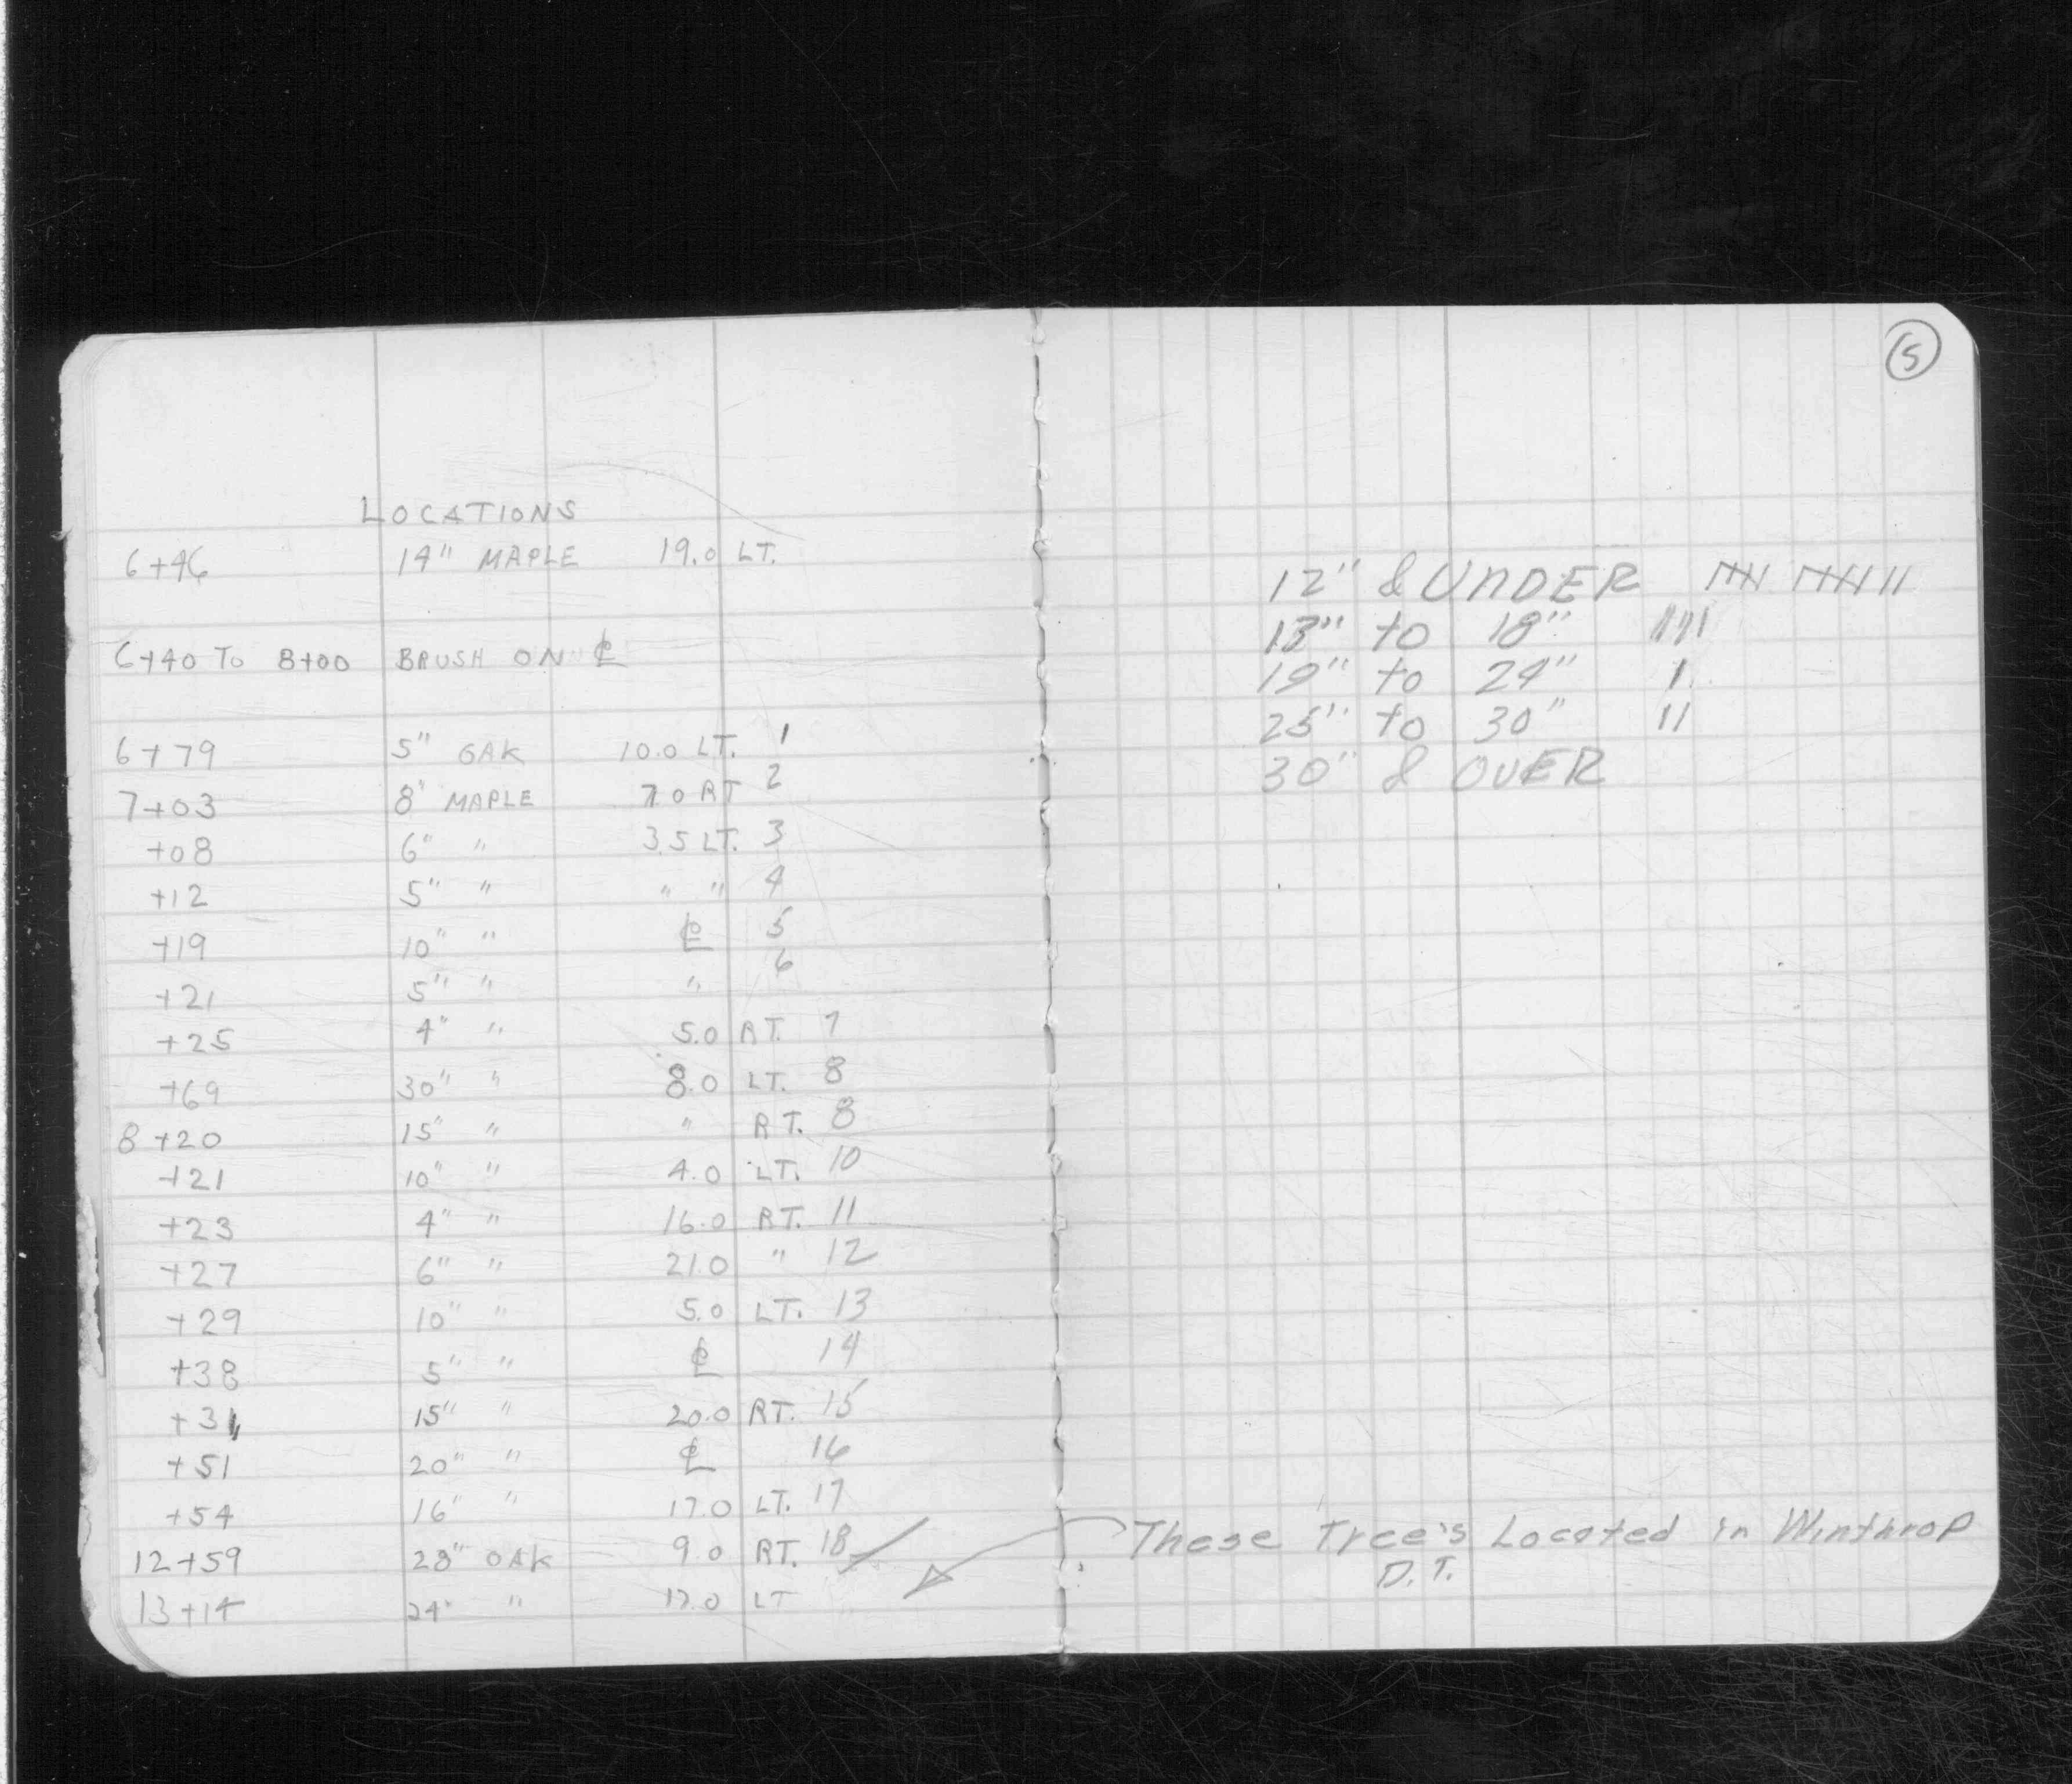 LOCATIONS
6+46 14" MAPLE 19.0 LT.
6+40 TO 8+00 BRUSH ON ℄
6+79 5" OAK 10.0 LT. 1
7+03 8" MAPLE 7.0 RT 2
+08 6" " 3.5 LT. 3
+12 5" " " " 4
+19 10" " ℄ 5
+21 5" " " 6
+25 4" " 5.0 RT. 7
+69 30" " 8.0 LT. 8
8+20 15" " " RT. 8
+21 10" " 4.0 LT. 10
+23 4" " 16.0 RT. 11
+27 6" " 21.0 " 12
+29 10" " 5.0 LT. 13
+38 5" " ℄ 14
+31 15" " 20.0 RT. 15
+51 20" " ℄ 16
+54 16" " 17.0 LT. 17
12+59 28" OAK 9.0 RT. 18
13+14 24" " 17.0 LT
5
12" & UNDER 𝍸 𝍸 ||
13" to 18" ||||
19" to 24" |
25" to 30" ||
30" & OVER
These Tree's Located in Winthrop
D.T.